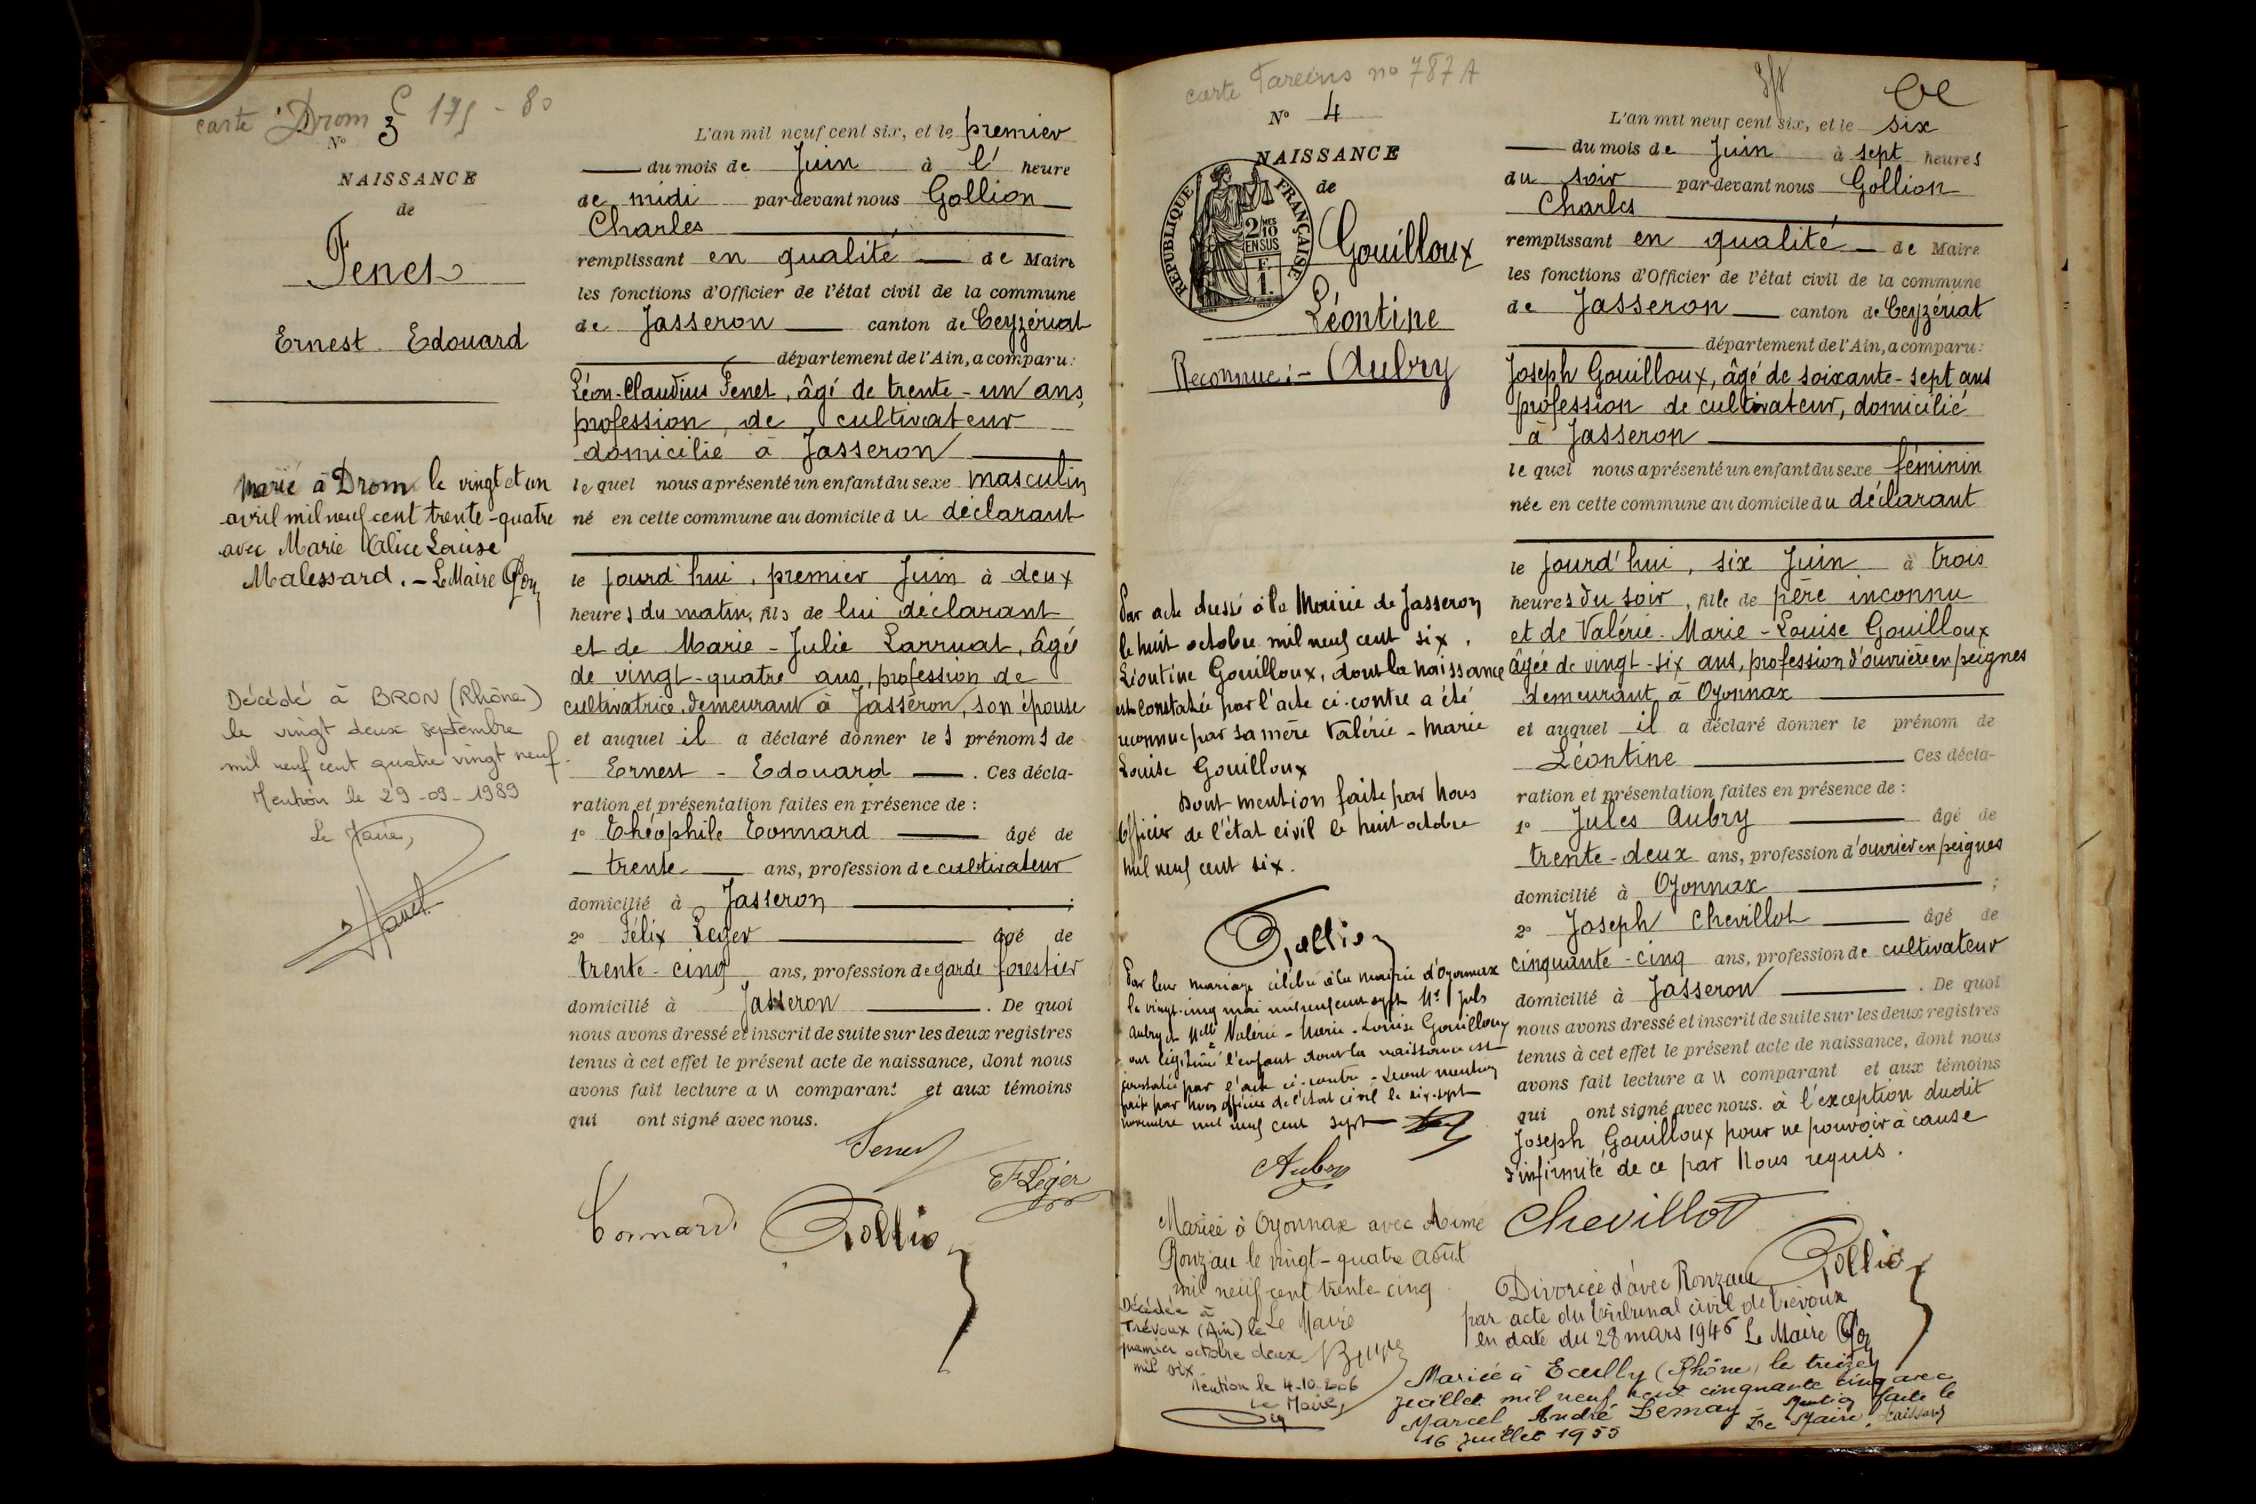 carte Drom
175 - 80
N° 3
NAISSANCE
de
Fenet
Ernest Edouard
Marié à Drom le vingt et un
avril mil neuf cent trente-quatre
avec Marie Alice Louise
Malessard. - Le Maire
Décédé à BRON (Rhône)
le vingt deux septembre
mil neuf cent quatre vingt neuf.
Mention le 29-09-1989
Le Maire,
L'an mil neuf cent six, et le premier
du mois de Juin à l' heure
de midi par-devant nous Gollion
Charles
remplissant en qualité de Maire
les fonctions d'Officier de l'état civil de la commune
de Jasseron canton de Ceyzériat
département de l'Ain, a comparu:
Léon-Claudius Fenet, âgé de trente-un ans,
profession de cultivateur
domicilié à Jasseron
lequel nous a présenté un enfant du sexe masculin
né en cette commune au domicile du déclarant
le jourd'hui, premier Juin à deux
heures du matin, fils de lui déclarant
et de Marie-Julie Larruat, âgée
de vingt-quatre ans, profession de
cultivatrice, demeurant à Jasseron, son épouse
et auquel il a déclaré donner les prénoms de
Ernest - Edouard. Ces décla-
ration et présentation faites en présence de :
1° Théophile Tonnard âgé de
trente ans, profession de cultivateur
domicilié à Jasseron ;
2° Félix Leger âgé de
trente-cinq ans, profession de garde forestier
domicilié à Jasseron. De quoi
nous avons dressé et inscrit de suite sur les deux registres
tenus à cet effet le présent acte de naissance, dont nous
avons fait lecture au comparant et aux témoins
qui ont signé avec nous.
Fenet
F Léger
Tonnard
Gollion
carte Tareins no 787 A
N° 4
NAISSANCE
de
REPUBLIQUE FRANÇAISE
2/10 MES
EN SUS
F.
1.
Gouilloux
Léontine
Reconnue :- Aubry
Par acte dressé à la Mairie de Jasseron
le huit octobre mil neuf cent six,
Léontine Gouilloux, dont la naissance
est constatée par l'acte ci-contre a été
reconnue par sa mère Valérie-Marie
Louise Gouilloux
Dont mention faite par Nous
Officier de l'état civil le huit octobre
mil neuf cent six.
Gollion
Par leur mariage célébré à la mairie d'Oyonnax
le vingt-cinq mai mil neuf cent sept Mr Jules
Aubry et Melle Valérie-Marie-Louise Gouilloux
ont légitimé l'enfant dont la naissance est
constatée par l'acte ci-contre - Dont mention
faite par nous officier de l'état civil le dix-sept
novembre mil neuf cent sept
Aubry
Mariée à Oyonnax avec Aimé
Ronzau le vingt-quatre août
mil neuf cent trente cinq
Le Maire
Décédée à
Trévoux (Ain) le
premier octobre deux
mil six
Mention le 4-10-2006
Le Maire,
L'an mil neuf cent six, et le six
du mois de Juin à sept heures
du soir par-devant nous Gollion
Charles
remplissant en qualité de Maire
les fonctions d'Officier de l'état civil de la commune
de Jasseron canton de Ceyzériat
département de l'Ain, a comparu:
Joseph Gouilloux, âgé de soixante-sept ans
profession de cultivateur, domicilié
à Jasseron
lequel nous a présenté un enfant du sexe féminin
née en cette commune au domicile du déclarant
le jourd'hui, six Juin à trois
heures du soir, fille de père inconnu
et de Valérie-Marie-Louise Gouilloux
âgée de vingt-six ans, profession d'ouvrière en peignes
demeurant à Oyonnax
et auquel il a déclaré donner le prénom de
Léontine Ces décla-
ration et présentation faites en présence de :
1° Jules Aubry âgé de
trente-deux ans, profession d'ouvrier en peignes
domicilié à Oyonnax ;
2° Joseph Chevillot âgé de
cinquante-cinq ans, profession de cultivateur
domicilié à Jasseron. De quoi
nous avons dressé et inscrit de suite sur les deux registres
tenus à cet effet le présent acte de naissance, dont nous
avons fait lecture au comparant et aux témoins
qui ont signé avec nous. à l'exception dudit
Joseph Gouilloux pour ne pouvoir à cause
d'infirmité de ce par Nous requis.
Chevillot
Gollion
Divorcée d'avec Ronzau
par acte du tribunal civil de Trévoux
en date du 28 mars 1946 Le Maire
Mariée à Ecully (Rhône) le treize
juillet mil neuf cent cinquante cinq avec
Marcel André Lemay - Mention faite le
16 juillet 1955 Le Maire.